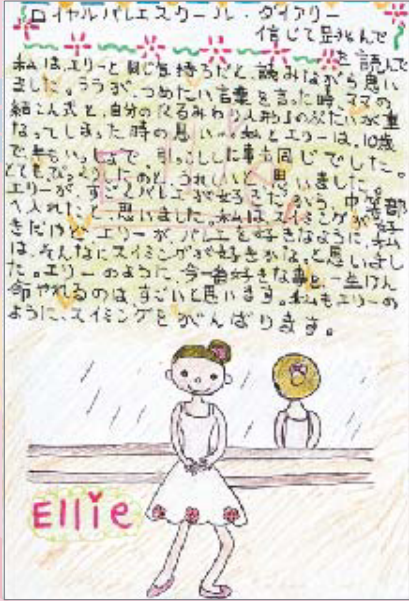 ロイヤルバレエスクール・ダイアリー
信じて跳んで
を読んで
私は、エリーと同じ気持ちだと、読みながら思い
ました。ララが、つめたい言葉を言った時、ママの
結こん式と、自分のくるみわり人形のぶたいが重
なってしまった時の思い…私とエリーは、10歳
で年もいっしょで、引っこしした事も同じでした。
とてもびっくりしたのと、うれしいと思いました。
エリーが、すごくバレエが好きだから、中等部
へ入れたと思いました。私はスイミングが好
きだけど、エリーがバレエを好きなように、私
は、そんなにスイミングが好きかな。と思いまし
た。エリーのように、今一番好きな事を、一生けん
命やれるのは、すごいと思います。私もエリーの
ように、スイミングをがんばります。
Ellie